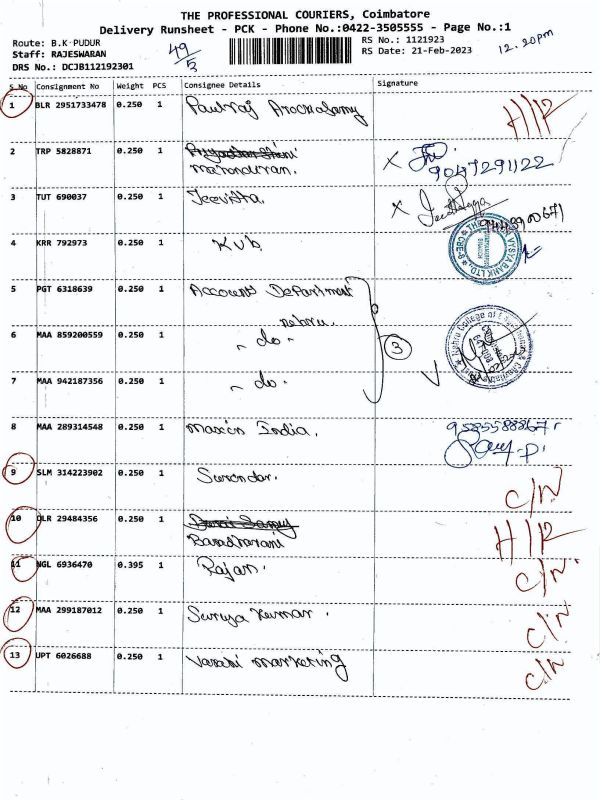 THE PROFESSIONAL COURIERS, Coimbatore
Delivery Runsheet - PCK - Phone No.:0422-3505555 - Page No.:1
Route: B.K PUDUR
Staff: RAJESWARAN
DRS No.: DCJB112192301
49/5
RS No.: 1121923
RS Date: 21-Feb-2023
12.20pm
S.No Consignment No Weight PCS Consignee Details Signature
1 BLR 2951733478 0.250 1 Paulraj H/R
2 TRP 5828871 0.250 1 9047291122
3 TUT 690037 0.250 1 Jeevitha.
4 KRR 792973 0.250 1 KVB
VYSYA BANK LTD.
5 PGT 6318639 0.250 1 Accounts Department
nehru.
6 MAA 859200559 0.250 1 - do - 3
Nehru College of
7 MAA 942187356 0.250 1 - do.
8 MAA 289314548 0.250 1 India.
9 SLM 314223902 0.250 1 Surendar. C/N
10 DLR 29484356 0.250 1 H/R
11 NGL 6936470 0.395 1 Rajan. C/N
12 MAA 299187012 0.250 1 Surya Kumar. C/N
13 UPT 6026688 0.250 1 Varahi marketing C/N